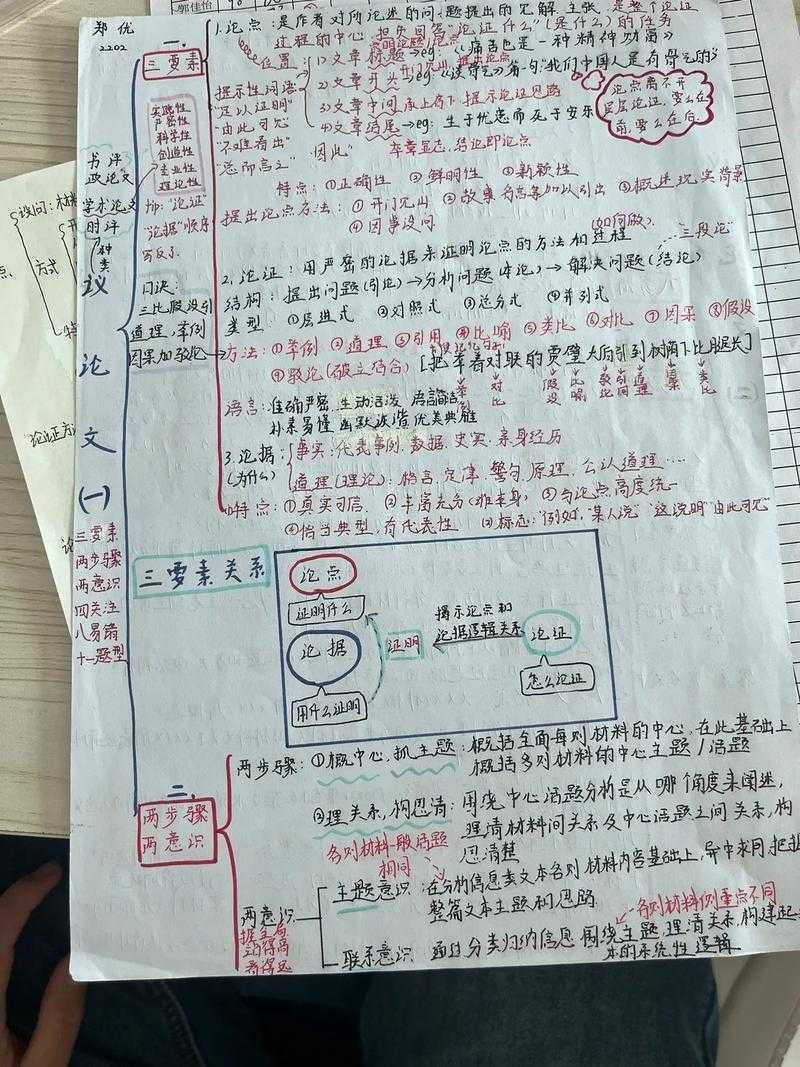 郑优
2202
书评
政论文
学术论文
时评
种类
议论文(一)
三要素
两步骤
两意识
四关注
八易错
十一题型
一、
三要素
实践性
严密性
科学性
创造性
专业性
理论性
tip:"论证"
"论据"顺序
写反了
口诀:
三比假设引
道理,举例
因果加驳论
1.论点:是作者对所论述的问题提出的见解 主张,是整个论证
过程的中心 担负回答"论证什么"(是什么)的任务
位置:
1)文章标题→eg:《痛苦也是一种精神财富》
2)文章开头 eg《谈骨气》首句"我们中国人是有骨气的"
3)文章中间 承上启下 提示论证思路
4)文章结尾→eg:生于忧患而死于安乐
卒章显志,结论即论点
提示性词语
"足以证明"
"由此可见"
"不难看出"
"总而言之" "因此"
论点离不开
层层论证,要么在
前,要么在后。
特点:①正确性 ②鲜明性 ③新颖性
提出论点方法:①开门见山 ②故事,名言等加以引出 ③概述现实背景
④因事设问
(如何做)
2.论证:用严密的论据来证明论点的方法和过程
"三段论"
结构:提出问题(引论)→分析问题(本论)→解决问题(结论)
类型:①层进式 ②对照式 ③总分式 ④并列式
方法:①举例 ②道理 ③引用 ④比喻 ⑤类比 ⑥对比 ⑦因果 ⑧假设
⑨驳论(破立结合)
[把举着对联的贾璧太后引到树荫下比腿长]
语言:准确严密,生动活泼 语言简洁
朴素易懂 幽默诙谐 优美典雅
3.论据:
(为什么)
事实:代表事例,数据,史实,亲身经历
道理(理论):格言,定律,警句,原理,公认道理……
特点:①真实可信 ②丰富充分 ③与论点高度统一
④恰当典型,有代表性
标志:"例如,"某人说""这说明""由此可见"
三要素关系
论点
证明什么
论据
用什么证明
证明
揭示论点和
论据逻辑关系
论证
怎么论证
二、
两步骤
两意识
两步骤:①概中心,抓主题:概括全面每则材料的中心,在此基础上
概括多则材料的中心主题/话题
②理关系,构思清:围绕中心话题分析是从哪个角度来阐述,
理清材料间关系及中心话题之间关系,构
思清楚
各则材料一般话题
相同
两意识
主题意识:在分析信息类文本各则材料内容基础上,异中求同,把握
整篇文本主题和思路
各则材料侧重点不同
联系意识:通过分类归纳信息 围绕主题,理清关系,构建起
本的系统性逻辑